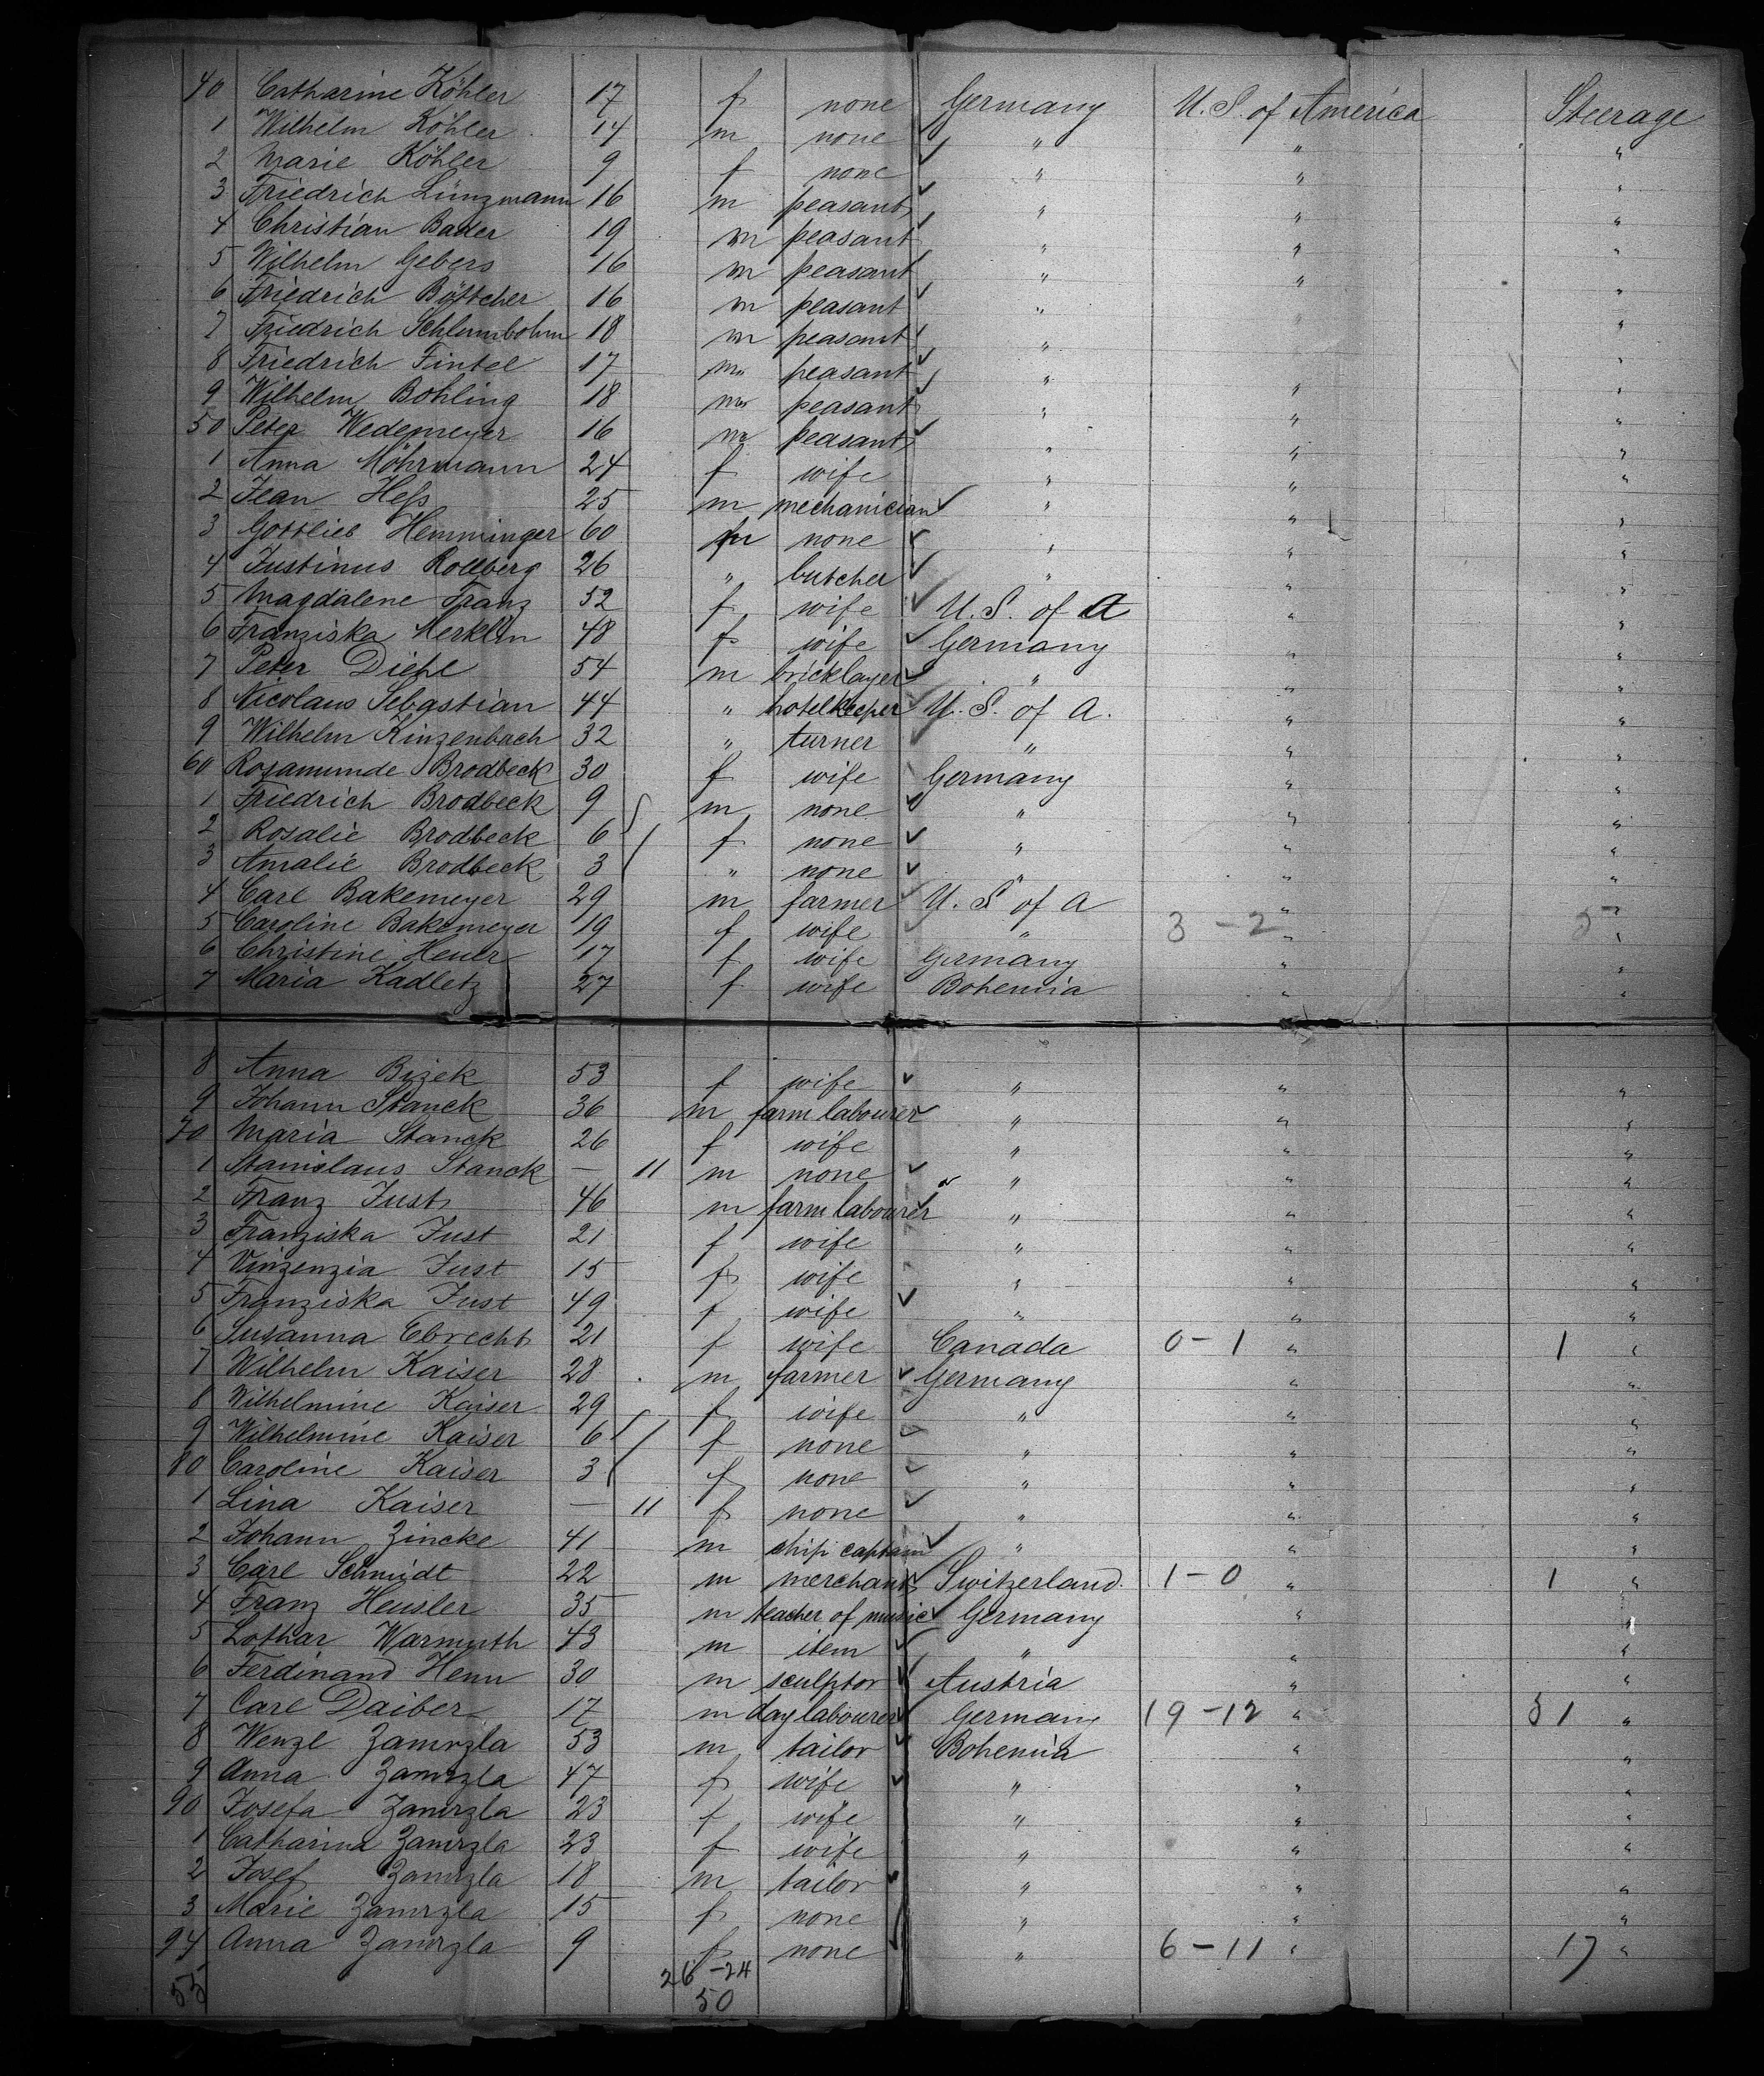 40 Catharine Köhler 17 f none Germany U.S. of America Steerage
1 Wilhelm Köhler 14 m none " " "
2 Marie Köhler 9 f none " " "
3 Friedrich Lünzmann 16 m peasant " " "
4 Christian Bader 19 m peasant " " "
5 Wilhelm Gebers 16 m peasant " " "
6 Friedrich Böttcher 16 m peasant " " "
7 Friedrich Schlumbohm 18 m peasant " "
8 Friedrich Fintel 17 m peasant " " "
9 Wilhelm Bohling 18 m peasant " " "
50 Peter Wedemeyer 16 m peasant " " "
1 Anna Möhrmann 24 f wife " " "
2 Jean Heß 25 m mechanician " " "
3 Gottlieb Hemminger 60 m none " " "
4 Justinus Rollberg 26 " butcher " " "
5 Magdalene Franz 52 f wife U.S. of A " "
6 Franziska Merklin 48 f wife Germany " "
7 Peter Diehl 54 m bricklayer " " "
8 Nicolaus Sebastian 44 " hotelkeeper U.S. of A. " "
9 Wilhelm Kinzenbach 32 " turner " " "
60 Rosamunde Brodbeck 30 f wife Germany " "
1 Friedrich Brodbeck 9 m none " " "
2 Rosalie Brodbeck 6 f none " " "
3 Amalie Brodbeck 3 " none " " "
4 Carl Bakemeyer 29 m farmer U.S of A " "
5 Caroline Bakemeyer 19 f wife " 3-2 " 5 "
6 Christine Heuer 17 f wife Germany " "
7 Maria Kadletz 27 f wife Bohemia " "
8 Anna Bizek 53 f wife " " "
9 Johann Stanek 36 m farm labourer " " "
70 Maria Stanek 26 f wife " " "
1 Stanislaus Stanek — 11 m none " " "
2 Franz Just 46 m farm labourer " " "
3 Franziska Just 21 f wife " " "
4 Vinzenzia Just 15 f wife " " "
5 Franziska Just 49 f wife " " "
6 Susanna Ebrecht 21 f wife Canada 0-1 " 1 "
7 Wilhelm Kaiser 28 m farmer Germany " "
8 Wilhelmine Kaiser 29 f wife " " "
9 Wilhelmine Kaiser 6 f none " " "
80 Caroline Kaiser 3 f none " " "
1 Lina Kaiser — 11 f none " " "
2 Johann Zincke 41 m ship captain " " "
3 Carl Schmidt 22 m merchant Switzerland 1-0 " 1 "
4 Franz Heusler 35 m teacher of music Germany " "
5 Lothar Warmuth 43 m item " " "
6 Ferdinand Henn 30 m sculptor Austria " "
7 Carl Daiber 17 m day labourer Germany 19-12 " 31 "
8 Wenzl Zamrzla 53 m tailor Bohemia " "
9 Anna Zamrzla 47 f wife " " "
90 Josefa Zamrzla 23 f wife " " "
1 Catharina Zamrzla 23 f wife " " "
2 Josef Zamrzla 18 m tailor " " "
3 Marie Zamrzla 15 f none " " "
94 Anna Zamrzla 9 f none " 6-11 " 17 "
55 26-24
50